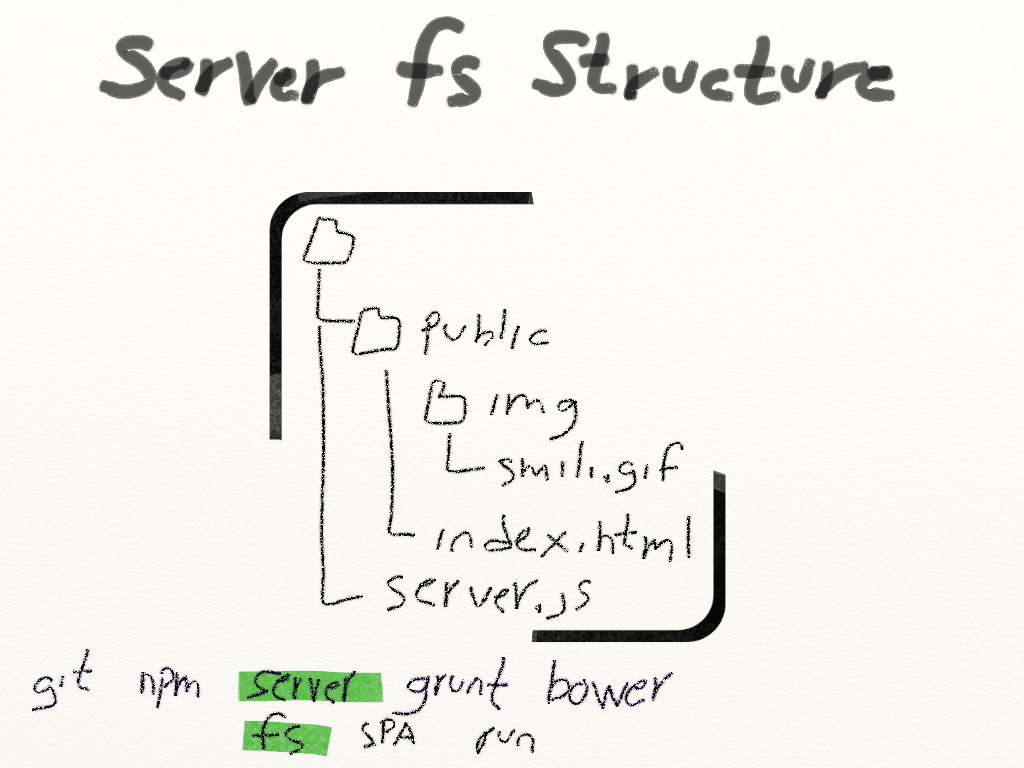 Server fs Structure
public
img
smili.gif
index.html
server.js
git npm server grunt bower
fs SPA run